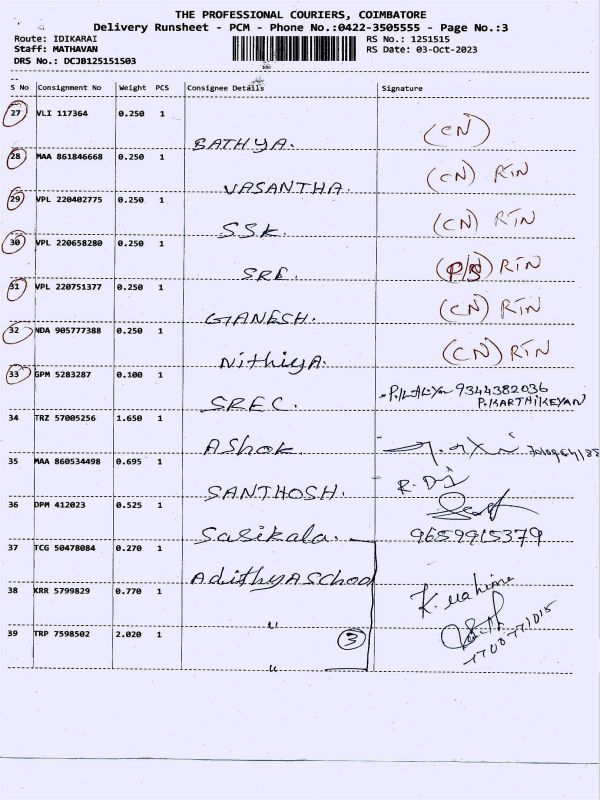 THE PROFESSIONAL COURIERS, COIMBATORE
Delivery Runsheet - PCM - Phone No.:0422-3505555 - Page No.:3
Route: IDIKARAI RS No.: 1251515
Staff: MATHAVAN RS Date: 03-Oct-2023
DRS No.: DCJB125151503
S No Consignment No Weight PCS Consignee Details Signature
27 VLI 117364 0.250 1
BATHYA. (CN)
28 MAA 861846668 0.250 1
VASANTHA. (CN) RTN
29 VPL 220402775 0.250 1
SSK. (CN) RTN
30 VPL 220658280 0.250 1
SRE. RTN
31 VPL 220751377 0.250 1
GANESH. (CN) RTN
32 NDA 905777388 0.250 1
Nithiya. (CN) RTN
33 GPM 5283287 0.100 1
SREC. 9344382036
P.KARTHIKEYAN
34 TRZ 57005256 1.650 1
Ashok.
35 MAA 860534498 0.695 1
SANTHOSH.
36 DPM 412023 0.525 1
Sasikala. 9659915379
37 TCG 50478084 0.270 1
Adithya School
38 KRR 5799829 0.770 1
"
39 TRP 7598502 2.020 1 3
"